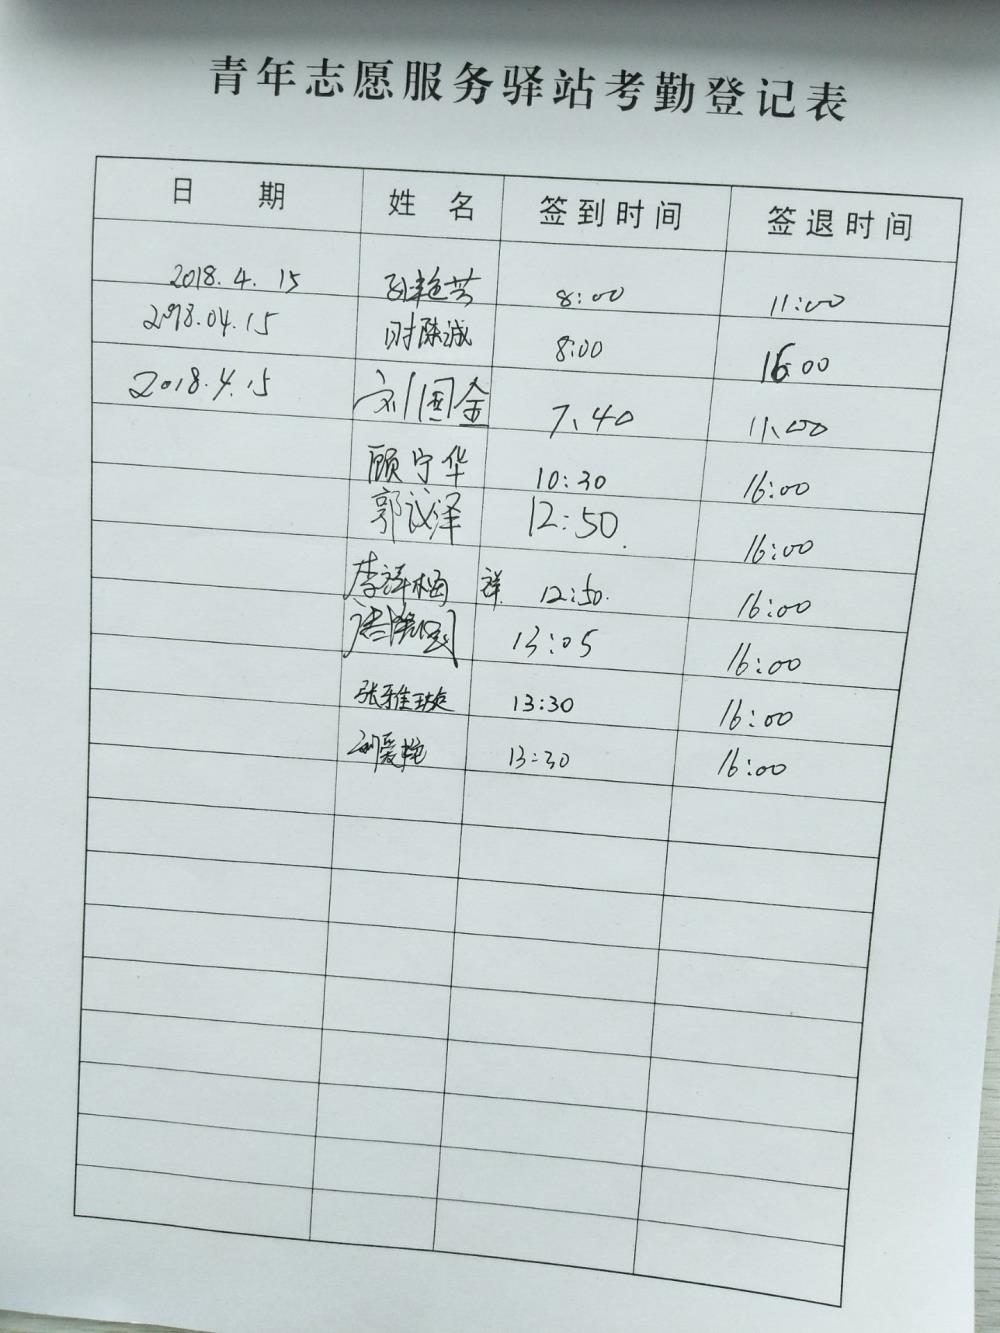 青年志愿服务驿站考勤登记表
日 期 姓 名 签到时间 签退时间
2018.4.15 孙艳芸 8:00 11:00
2018.04.15 时陈诚 8:00 16:00
2018.4.15 刘国金 7、40 11、00
顾宁华 10:30 16:00
郭议泽 12:50. 16:00
李祥梅 祥 12:50. 16:00
13:05 16:00
张雅琁 13:30 16:00
刘爱艳 13:30 16:00